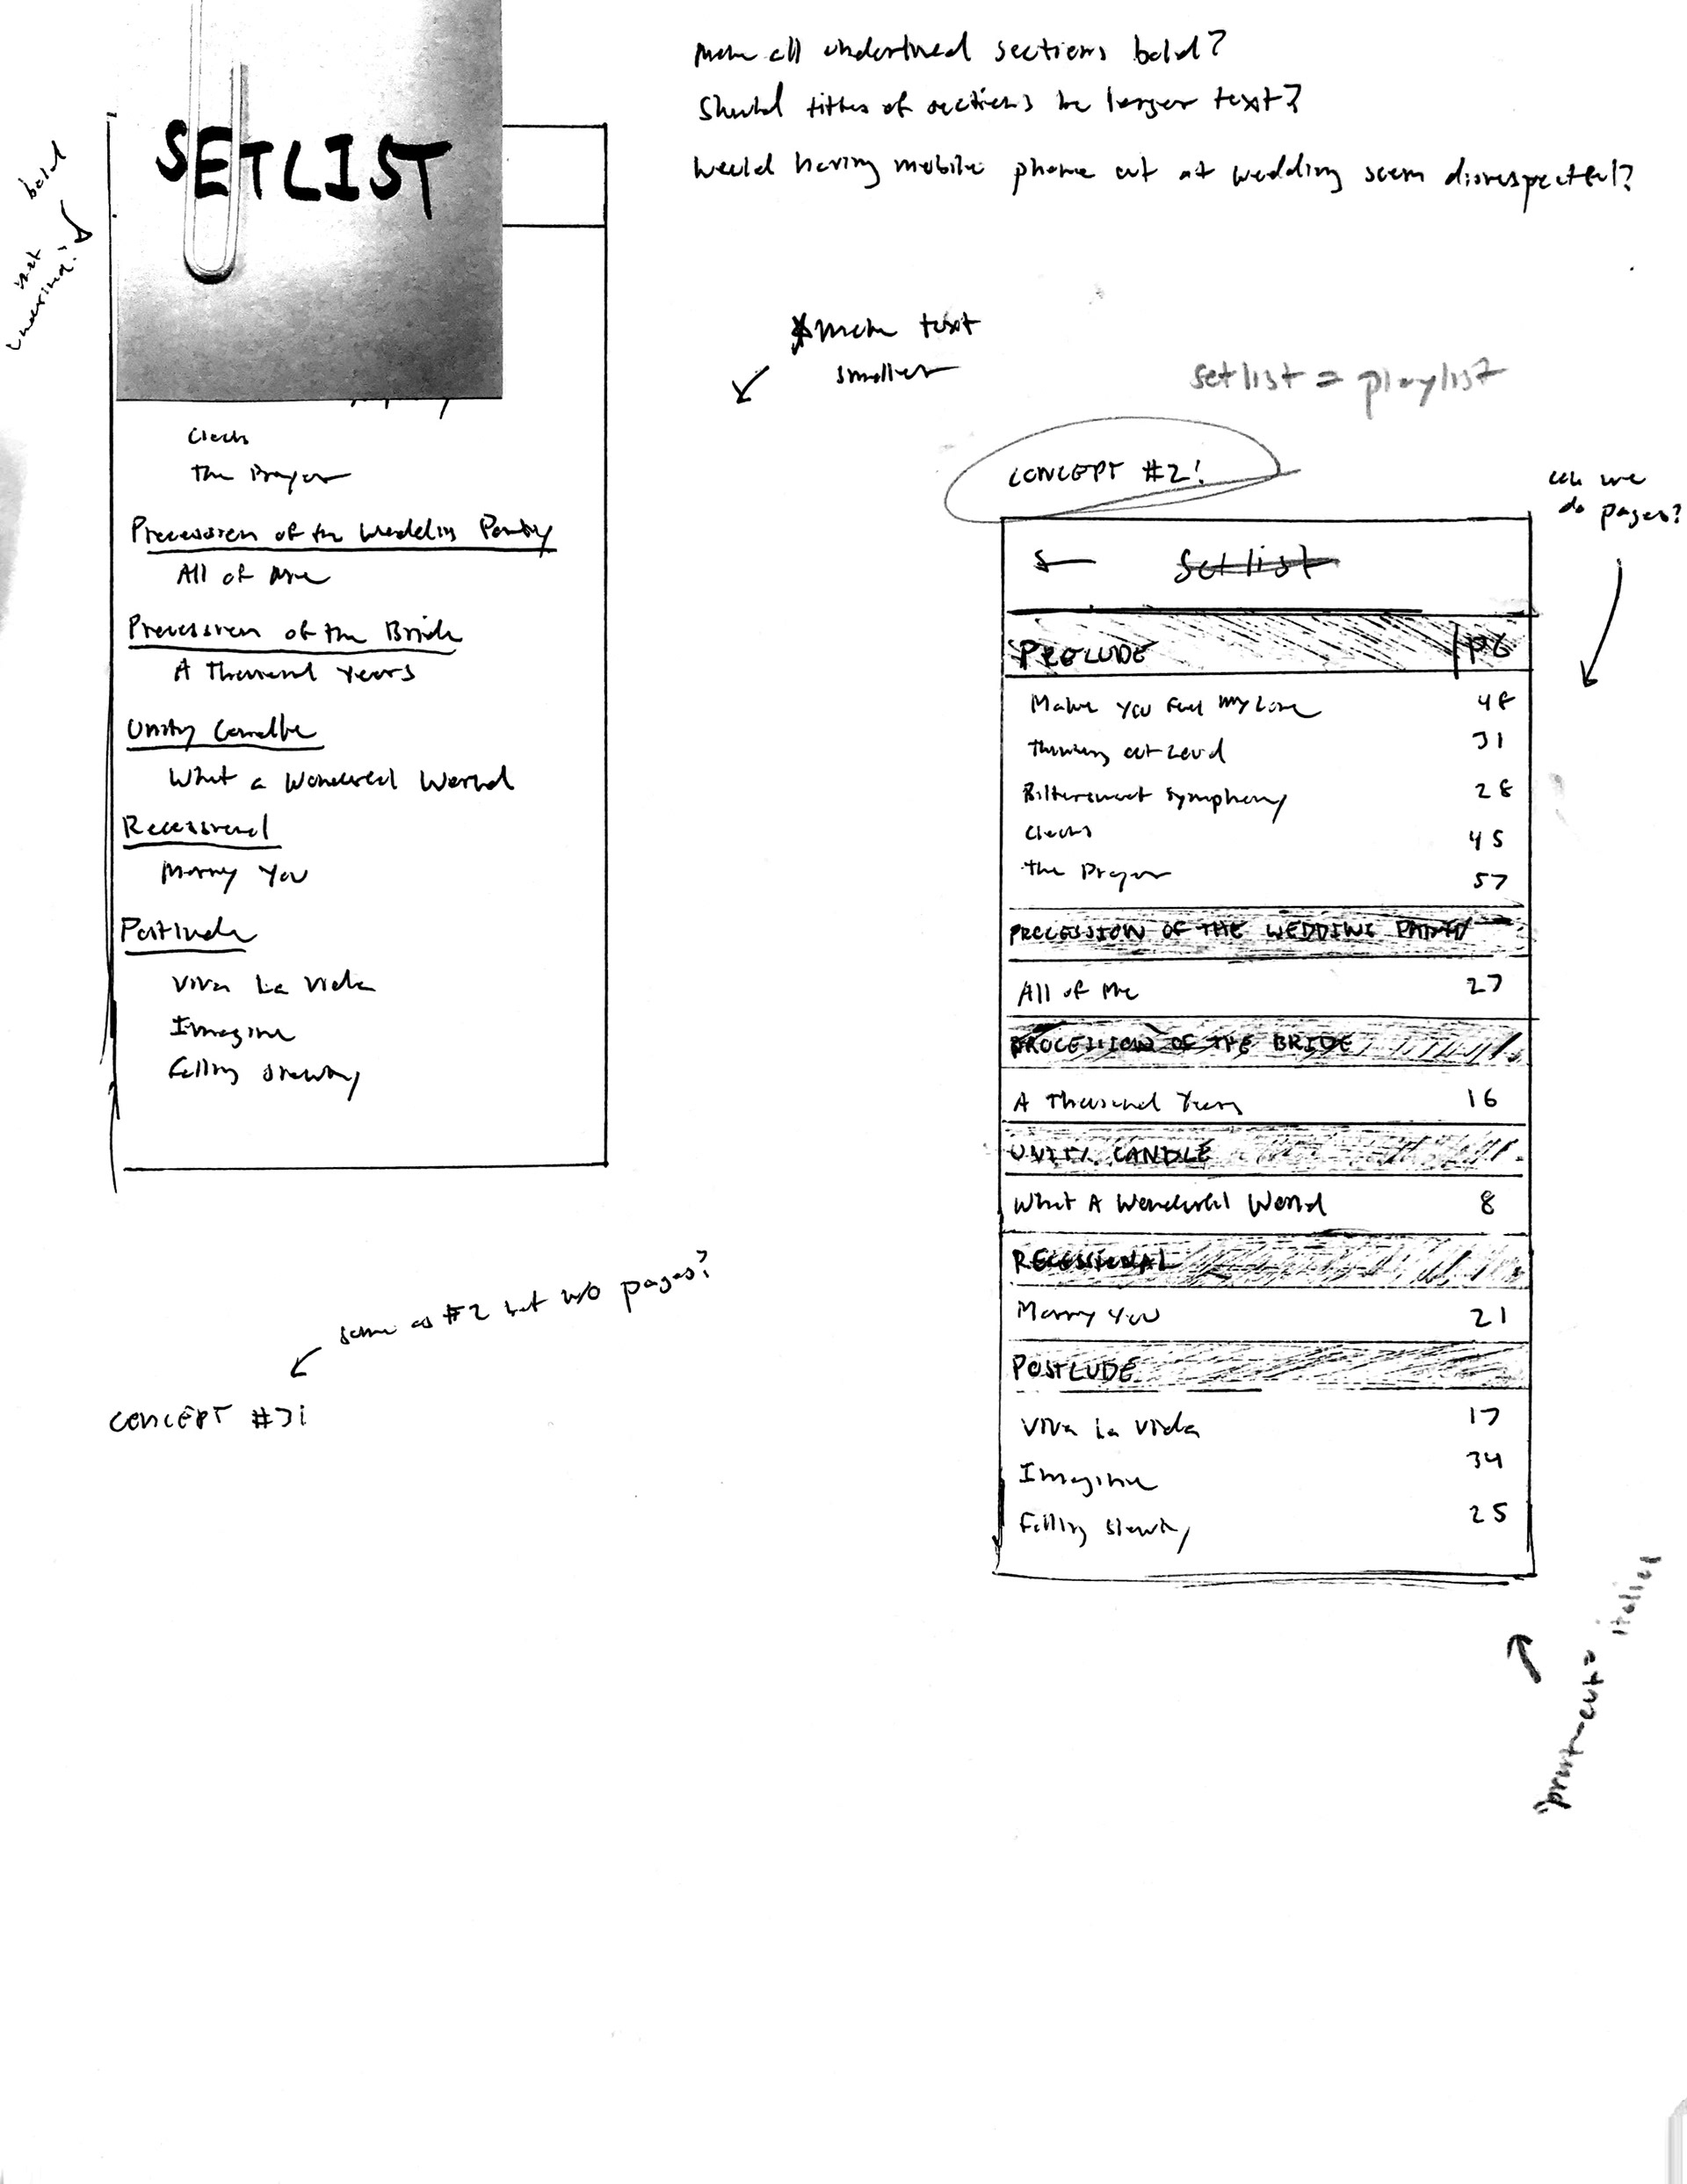 Make all underlined sections bold?
Should titles of sections be larger text?
Would having mobile phone out at wedding seem disrespectful?
SETLIST
bold
not
underlined?
Clocks
The Prayer
Procession of the Wedding Party
All of Me
Procession of the Bride
A Thousand Years
Unity Candle
What a Wonderful World
Recessional
Marry You
Postlude
Viva La Vida
Imagine
Falling Slowly
*make text
smaller
setlist = playlist
CONCEPT #2!
can we
do pages?
Setlist
PRELUDE PG
Make You Feel My Love 48
Thinking Out Loud 31
Bittersweet Symphony 28
Clocks 45
The Prayer 57
PROCESSION OF THE WEDDING PARTY
All of Me 27
PROCESSION OF THE BRIDE
A Thousand Years 16
UNITY CANDLE
What A Wonderful World 8
RECESSIONAL
Marry You 21
POSTLUDE
Viva La Vida 17
Imagine 34
Falling Slowly 25
same as #2 but w/o pages?
CONCEPT #3!
print-out =
italics